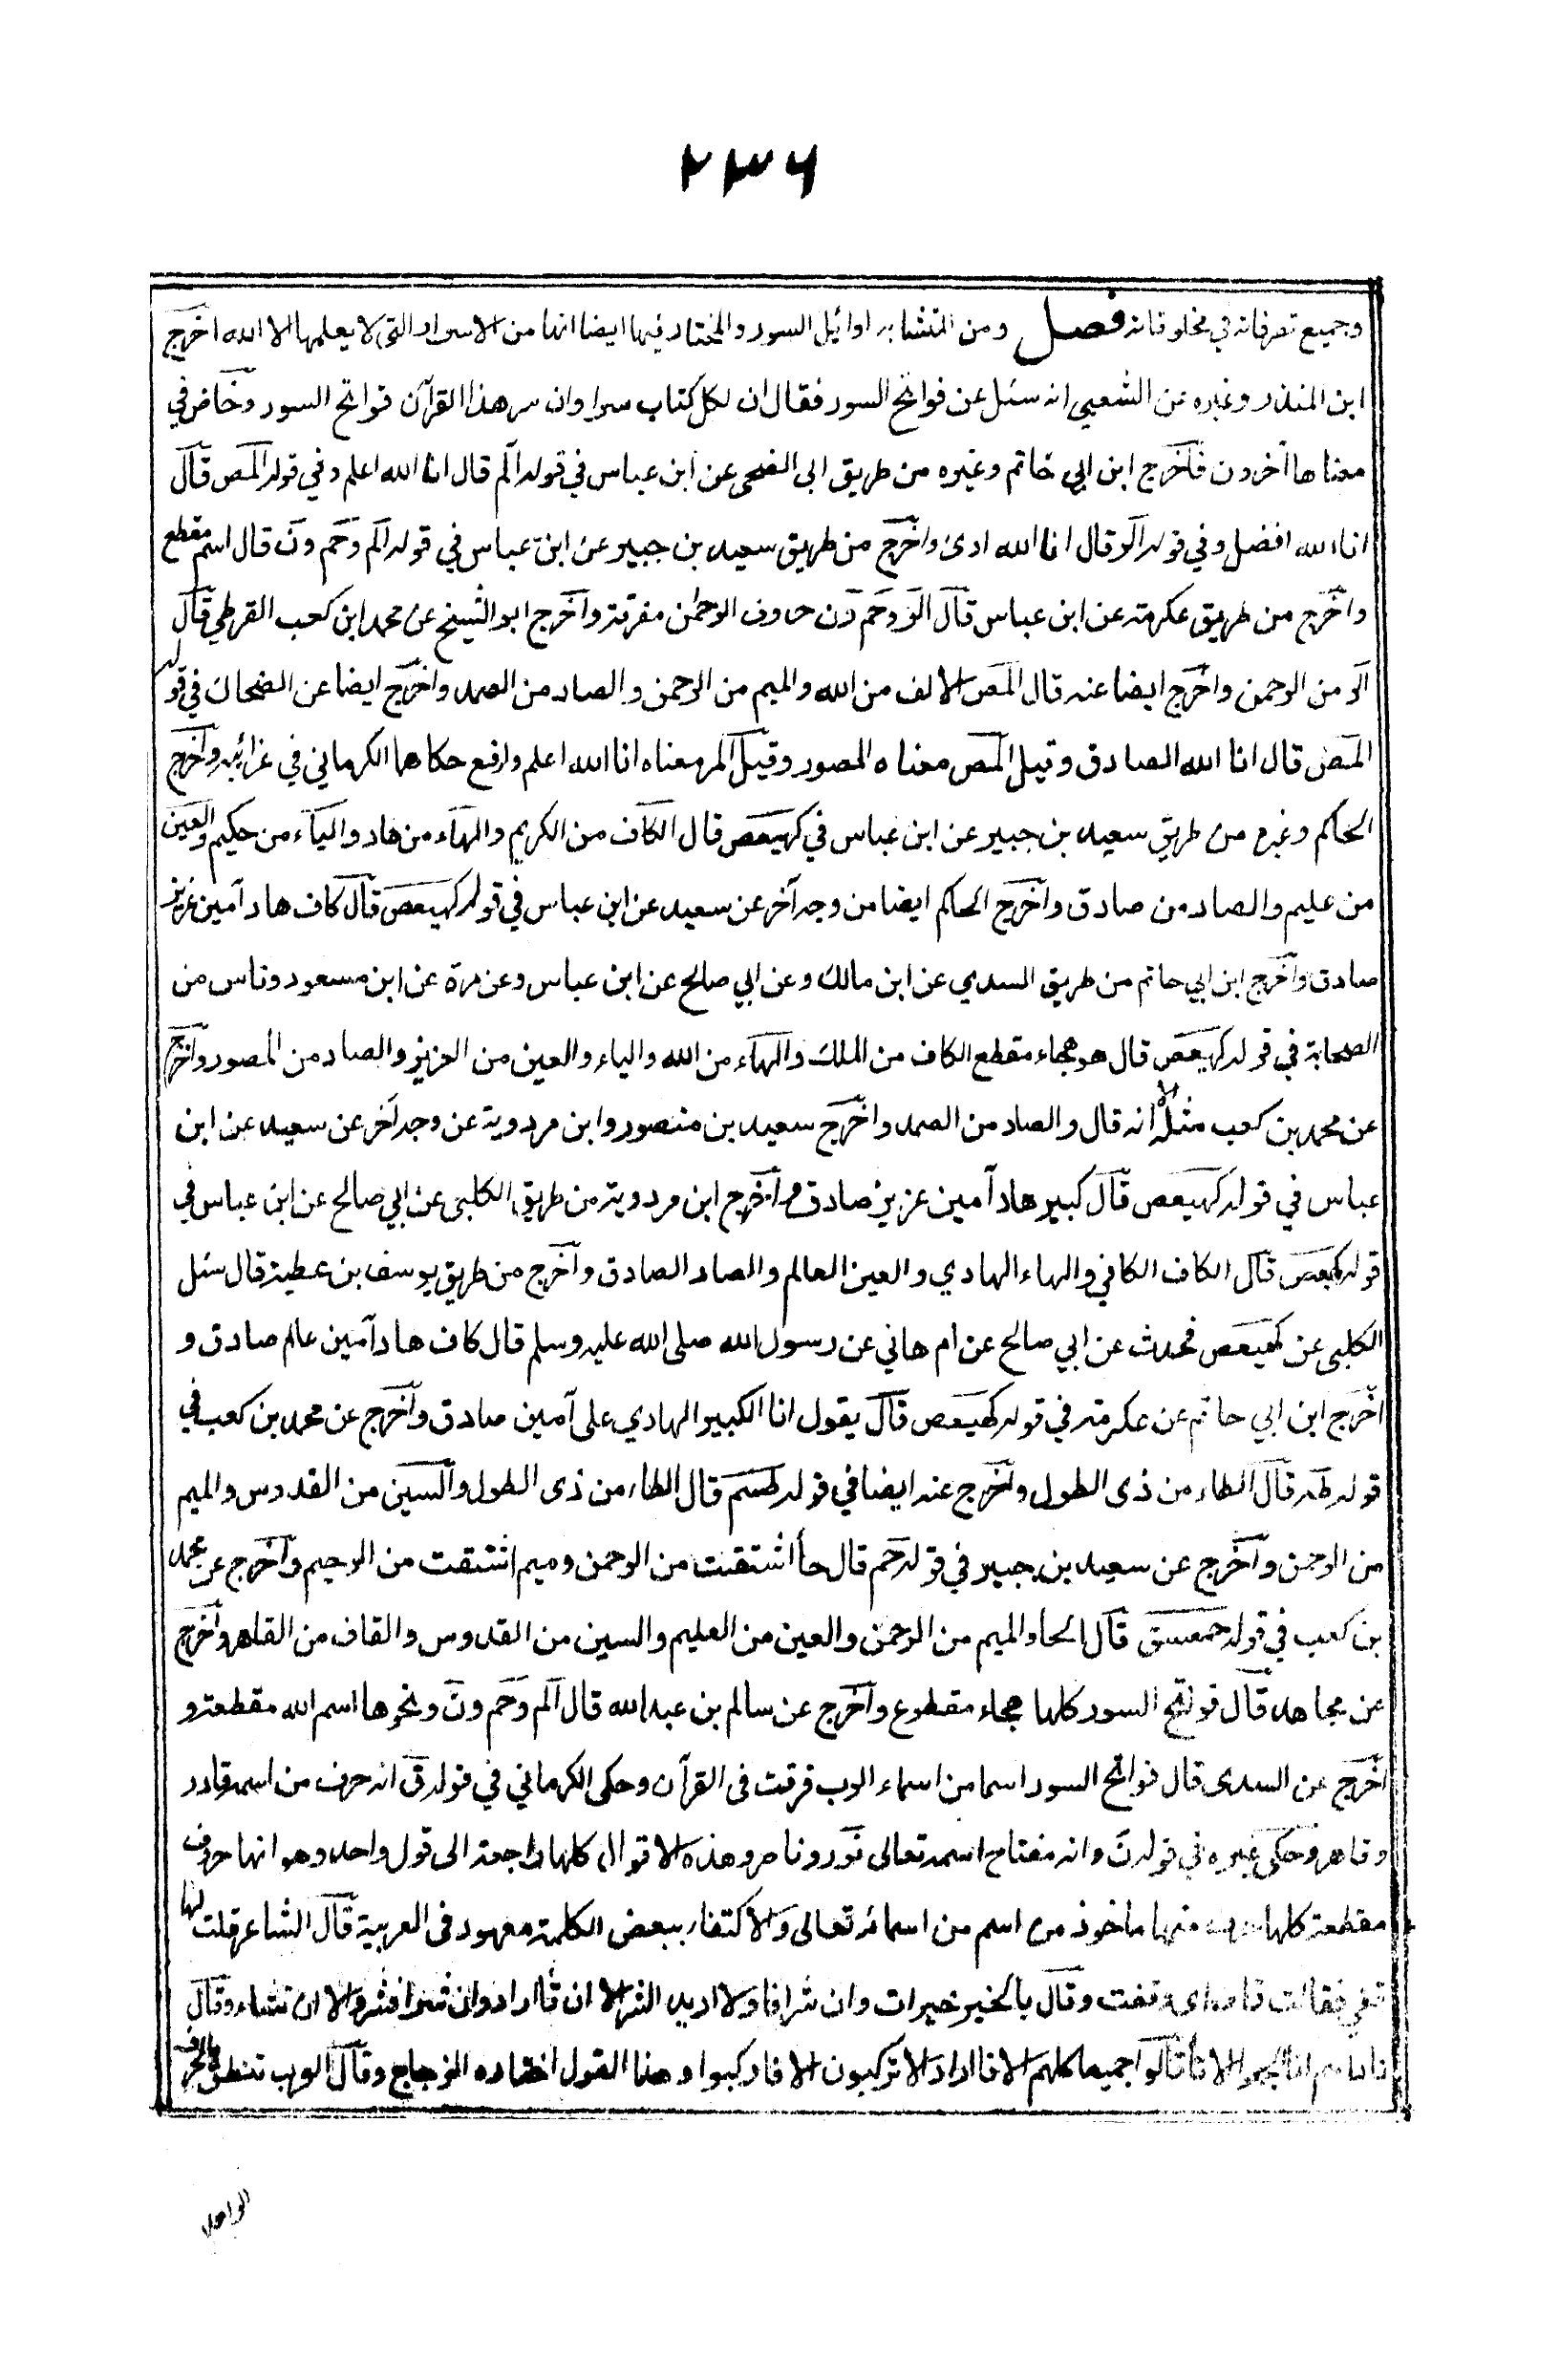 ٢٣٦
وجميع تصرفاته في مخلوقاته فصل ومن المتشابه اوائل السور والمختار فيها ايضا انها من الاسرار التي لا يعلمها الا الله اخرج
ابن المنذر وغيره عن الشعبي انه سئل عن فواتح السور فقال ان لكل كتاب سرا وان سر هذا القرآن فواتح السور وخاض في
معناها آخرون فاخرج ابن ابي حاتم وغيره من طريق ابي الضحى عن ابن عباس في قوله الم قال انا الله اعلم وفي قوله المص قال
انا الله افضل وفي قوله الر قال انا الله ارى واخرج من طريق سعيد بن جبير عن ابن عباس في قوله الم وحم ون قال اسم مقطع
واخرج من طريق عكرمة عن ابن عباس قال الر وحم ون حروف الرحمن مفرقة واخرج ابو الشيخ عن محمد ابن كعب القرظي قال
الر من الرحمن واخرج ايضا عنه قال المص الالف من الله والميم من الرحمن والصاد من الصمد واخرج ايضا عن الضحاك في قوله
المص قال انا الله الصادق وقيل المص معناه المصور وقيل المر معناه انا الله اعلم وارفع حكاهما الكرماني في غرائبه واخرج
الحاكم وغيره من طريق سعيد بن جبير عن ابن عباس في كهيعص قال الكاف من الكريم والهاء من هاد والياء من حكيم والعين
من عليم والصاد من صادق واخرج الحاكم ايضا من وجه آخر عن سعيد عن ابن عباس في قوله كهيعص قال كاف هاد آمين عزيز
صادق واخرج ابن ابي حاتم من طريق السدي عن ابن مالك وعن ابي صالح عن ابن عباس وعن مرة عن ابن مسعود وناس من
الصحابة في قوله كهيعص قال هو هجاء مقطع الكاف من الملك والهاء من الله والياء والعين من العزيز والصاد من المصور واخرج
عن محمد بن كعب مثله الا انه قال والصاد من الصمد واخرج سعيد بن منصور وابن مردوية عن وجه آخر عن سعيد عن ابن
عباس في قوله كهيعص قال كبير هاد آمين عزيز صادق واخرج ابن مردوية من طريق الكلبى عن ابي صالح عن ابن عباس في
قوله كهيعص قال الكاف الكافي والهاء الهادي والعين العالم والصاد الصادق واخرج من طريق يوسف بن عطية قال سئل
الكلبى عن كهيعص فحدث عن ابي صالح عن ام هاني عن رسول الله صلى الله عليه وسلم قال كاف هاد آمين عالم صادق و
اخرج ابن ابي حاتم عن عكرمة في قوله كهيعص قال يقول انا الكبير الهادي على آمين صادق واخرج عن محمد بن كعب في
قوله طه قال الطاء من ذى الطول واخرج عنه ايضا في قوله طسم قال الطاء من ذى الطول والسين من القدوس والميم
من الرحمن واخرج عن سعيد بن جبير في قوله حم قال حا اشتقت من الرحمن وميم اشتقت من الرحيم واخرج عن محمد
بن كعب في قوله حمعسق قال الحاء والميم من الرحمن والعين من العليم والسين من القدوس والقاف من القاهر واخرج
عن مجاهد قال فواتح السور كلها هجاء مقطوع واخرج عن سالم بن عبد الله قال الم وحم ون ونحوها اسم الله مقطعة و
اخرج عن السدى قال فواتح السور اسما من اسماء الرب فرقت فى القرآن وحكى الكرماني في قوله ق انه حرف من اسمه قادر
وقاهر وحكى غيره في قوله ن وانه مفتاح اسمه تعالى نور وناصر وهذه الاقوال كلها راجعة الى قول واحد وهو انها حروف
مقطعة كلها حرف منها ماخوذ من اسم من اسمائه تعالى والاكتفاء ببعض الكلمة معهود فى العربية قال الشاعر قلت لها
قفي فقالت قاف اى وقفت وقال بالخير خيرات وان شرا فا ولا اريد الشر الا ان تا اراد وان شرا فشر والا ان تشاء وقال
ناداهم الا الجموا الا تا قالوا جميعا كلهم الا فا اراد الا تركبون الا فاركبوا وهذا القول اختاره الزجاج وقال العرب تنطق بالحرف
الواحد